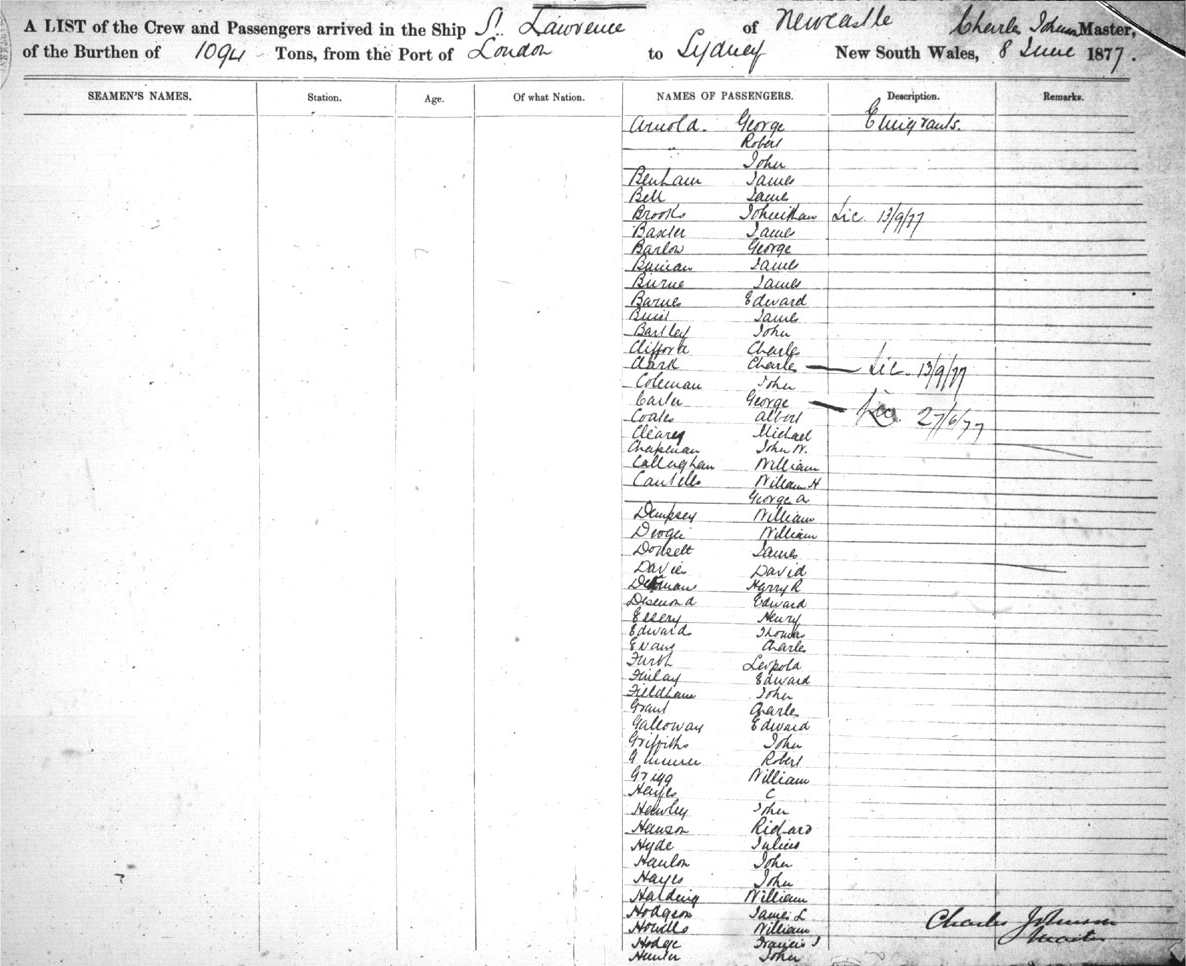 A LIST of the Crew and Passengers arrived in the Ship St. Lawrence of Newcastle Charles Johnson Master,
of the Burthen of 1094 Tons, from the Port of London to Sydney New South Wales, 8 June 1877.
SEAMEN'S NAMES. Station. Age. Of what Nation. NAMES OF PASSENGERS. Description. Remarks.
Arnold. George Emigrants.
Robert
John
Benham James
Bell James
Brooks Lic 13/9/77
Baxter James
Barlow George
James
Burne James
Barnes Edward
James
Bartley John
Clifford Charles
Clark Charles — Lic. 13/9/77
Coleman John
Carter George — Lic. 27/6/77
Coates Albert
Cleary Michael
Chapman John W.
Callaghan William
William H
George A
Dempsey William
William
Dorsett James
Davies David
Harry R
Desmond Edward
Essery Henry
Edwards Thomas
Evans Charles
Furth Leopold
Finlay Edward
Fieldham John
Grant Charles
Galloway Edward
Griffiths John
Robert
Gregg William
Hayes C
Hawley John
Hanson Richard
Hyde Julius
Hanlon John
Hayes John
Harding William
Hodgson James L
Howells William
Hodge Francis J
Hunter John
Charles Johnson
Master